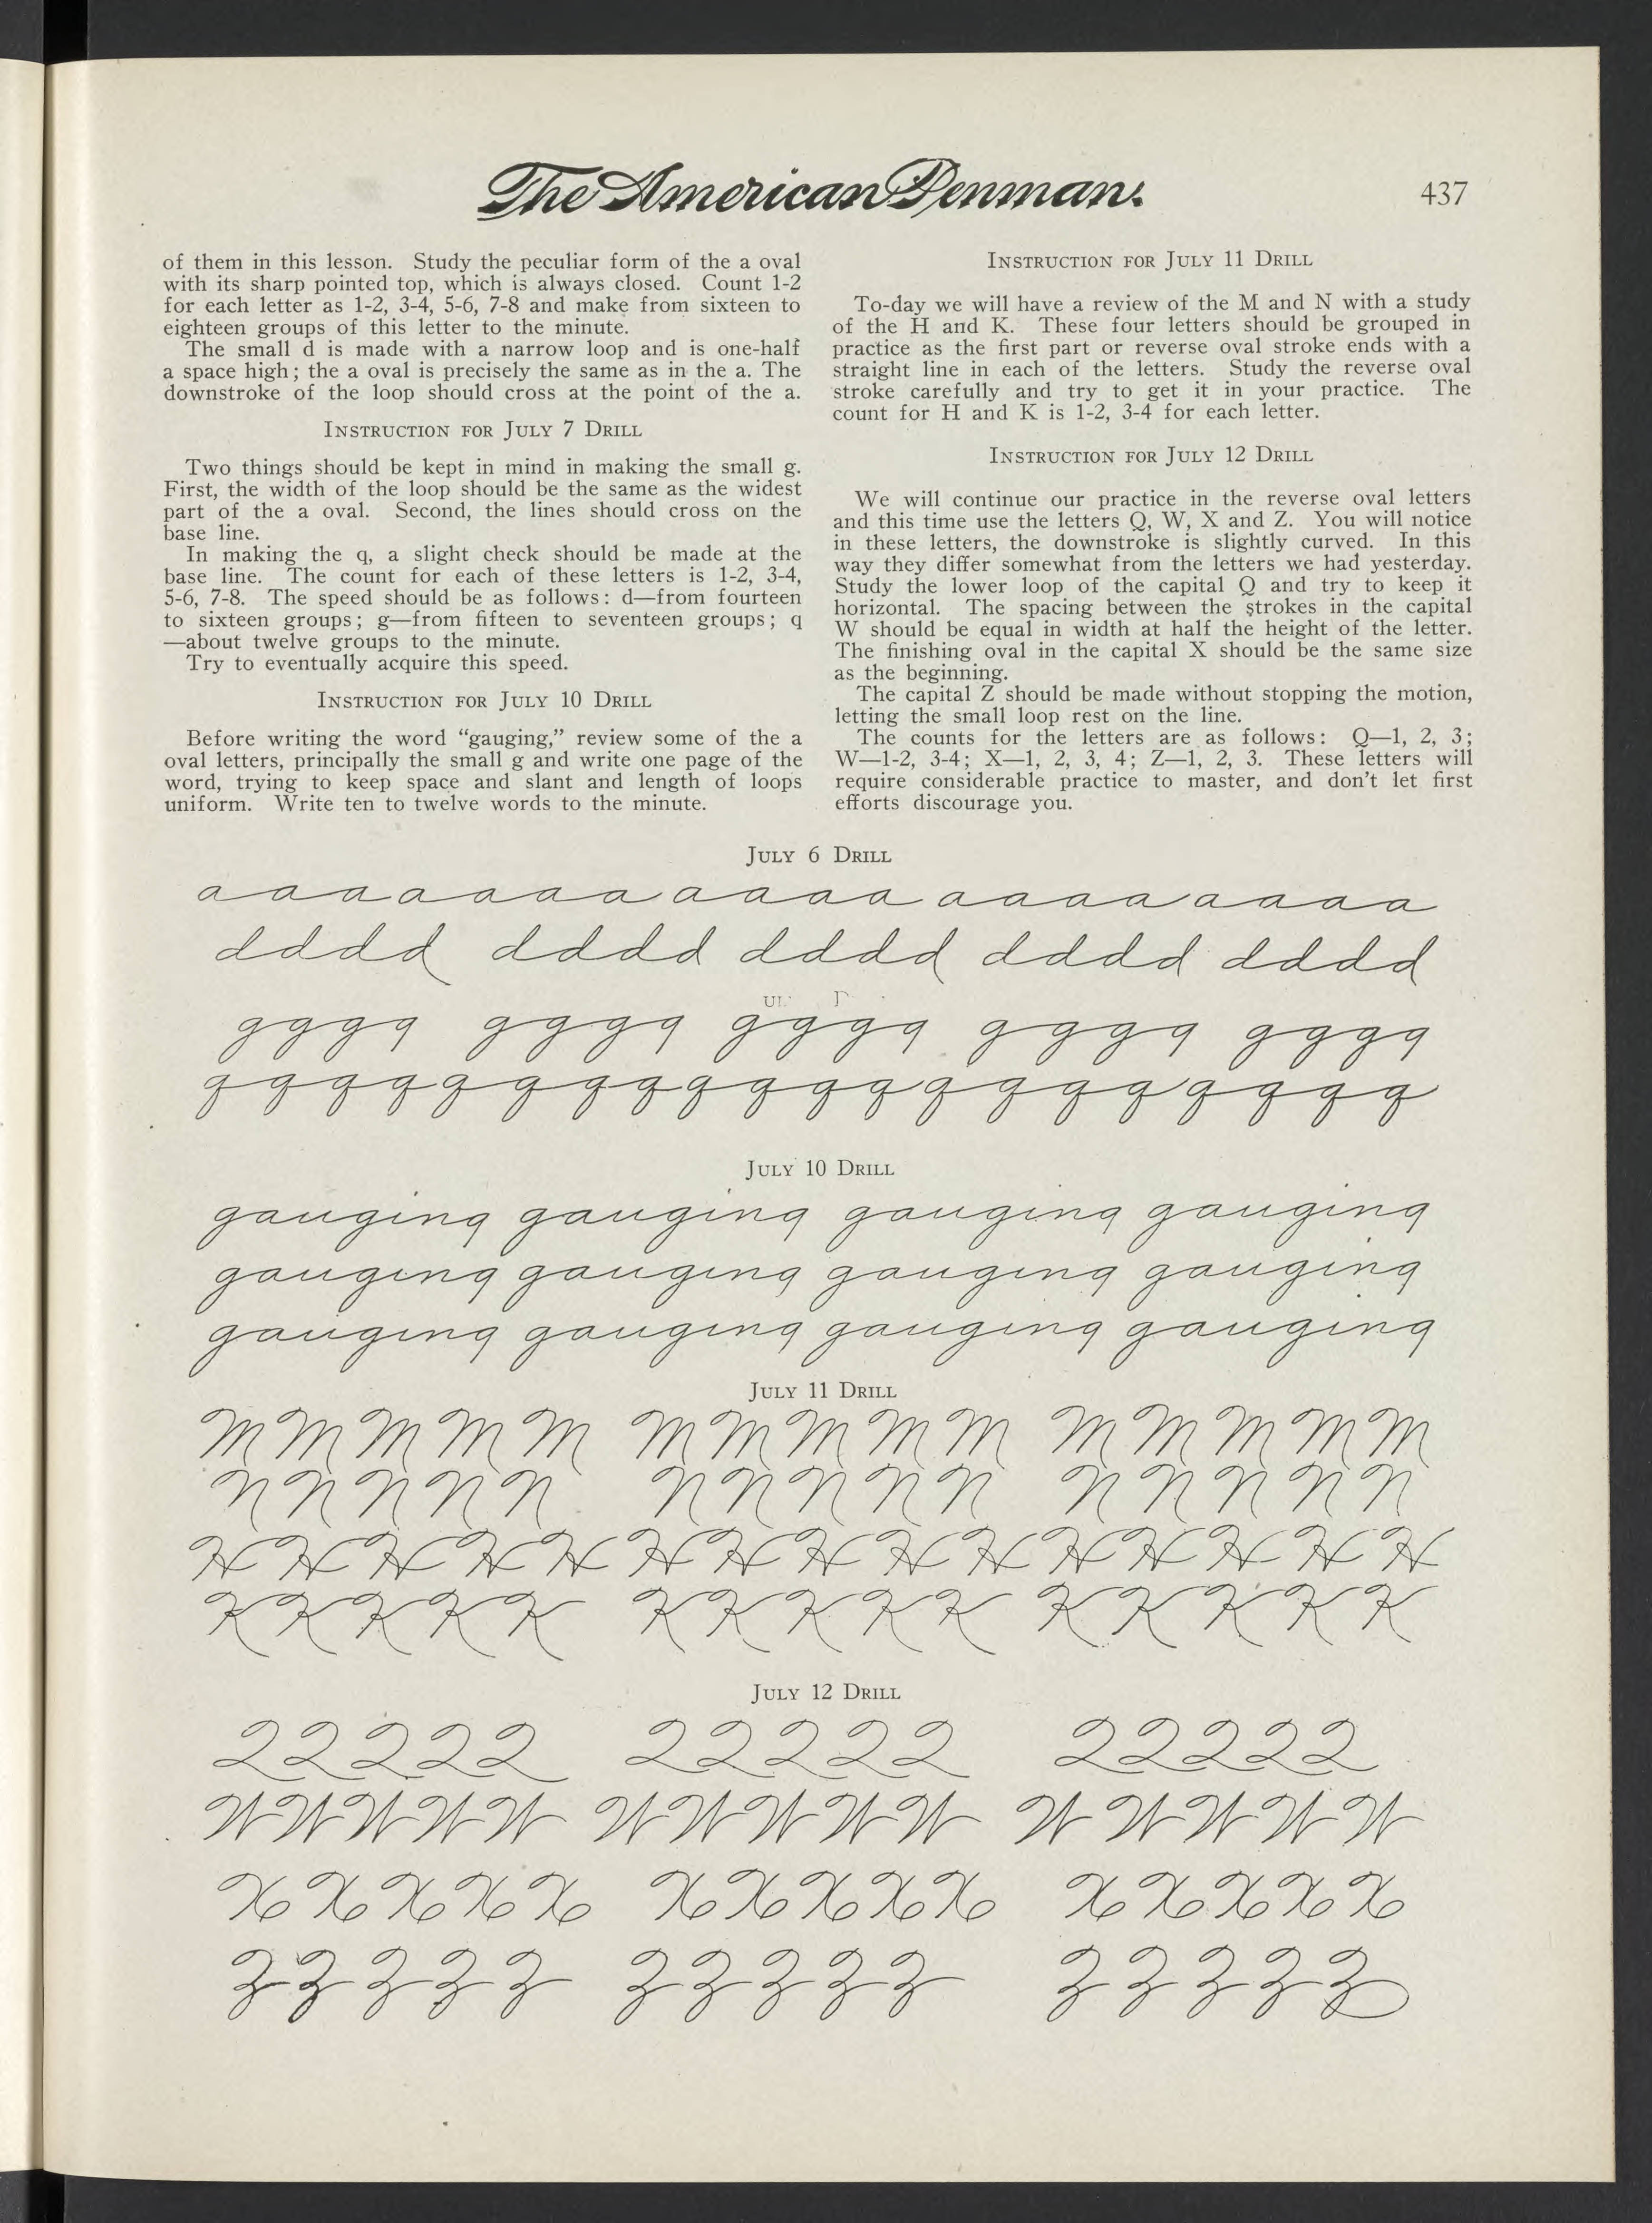 The American Penman.
437
of them in this lesson. Study the peculiar form of the a oval
with its sharp pointed top, which is always closed. Count 1-2
for each letter as 1-2, 3-4, 5-6, 7-8 and make from sixteen to
eighteen groups of this letter to the minute.
The small d is made with a narrow loop and is one-half
a space high; the a oval is precisely the same as in the a. The
downstroke of the loop should cross at the point of the a.
INSTRUCTION FOR JULY 7 DRILL
Two things should be kept in mind in making the small g.
First, the width of the loop should be the same as the widest
part of the a oval. Second, the lines should cross on the
base line.
In making the q, a slight check should be made at the
base line. The count for each of these letters is 1-2, 3-4,
5-6, 7-8. The speed should be as follows: d—from fourteen
to sixteen groups; g—from fifteen to seventeen groups; q
—about twelve groups to the minute.
Try to eventually acquire this speed.
INSTRUCTION FOR JULY 10 DRILL
Before writing the word “gauging,” review some of the a
oval letters, principally the small g and write one page of the
word, trying to keep space and slant and length of loops
uniform. Write ten to twelve words to the minute.
INSTRUCTION FOR JULY 11 DRILL
To-day we will have a review of the M and N with a study
of the H and K. These four letters should be grouped in
practice as the first part or reverse oval stroke ends with a
straight line in each of the letters. Study the reverse oval
stroke carefully and try to get it in your practice. The
count for H and K is 1-2, 3-4 for each letter.
INSTRUCTION FOR JULY 12 DRILL
We will continue our practice in the reverse oval letters
and this time use the letters Q, W, X and Z. You will notice
in these letters, the downstroke is slightly curved. In this
way they differ somewhat from the letters we had yesterday.
Study the lower loop of the capital Q and try to keep it
horizontal. The spacing between the strokes in the capital
W should be equal in width at half the height of the letter.
The finishing oval in the capital X should be the same size
as the beginning.
The capital Z should be made without stopping the motion,
letting the small loop rest on the line.
The counts for the letters are as follows: Q—1, 2, 3;
W—1-2, 3-4; X—1, 2, 3, 4; Z—1, 2, 3. These letters will
require considerable practice to master, and don't let first
efforts discourage you.
JULY 6 DRILL
a a a a a a a a a a a a a a a a a a a a
d d d d d d d d d d d d d d d d d d d d
g g g g g g g g g g g g g g g g g g g g
q q q q q q q q q q q q q q q q q q q q
JULY 10 DRILL
gauging gauging gauging gauging
gauging gauging gauging gauging
gauging gauging gauging gauging
JULY 11 DRILL
M M M M M M M M M M M M M M M
N N N N N N N N N N N N N N N
H H H H H H H H H H H H H H H
K K K K K K K K K K K K K K K
JULY 12 DRILL
Q Q Q Q Q Q Q Q Q Q Q Q Q Q Q
W W W W W W W W W W W W W W W
X X X X X X X X X X X X X X X
Z Z Z Z Z Z Z Z Z Z Z Z Z Z Z